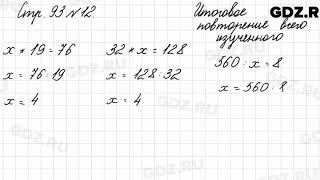 Стр. 93 № 12
GDZ.R
Итоговое
повторение всего
изученного
x * 19 = 76
x = 76 : 19
x = 4
32 * x = 128
x = 128 : 32
x = 4
560 : x = 8
x = 560 : 8